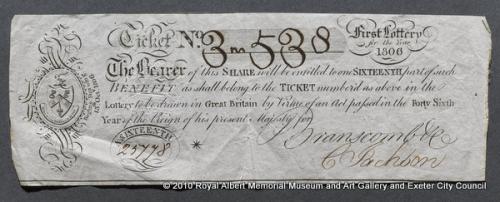 Ticket No. 3m538
First Lottery
for the Year
1806
The Bearer of this SHARE will be entitled to one SIXTEENTH part of such
BENEFIT as shall belong to the TICKET number'd as above in the
Lottery to be drawn in Great Britain by Virtue of an Act passed in the Forty Sixth
Year of the Reign of his present Majesty for
SIXTEENTH
Branscomb & Co
C Jackson
© 2010 Royal Albert Memorial Museum and Art Gallery and Exeter City Council